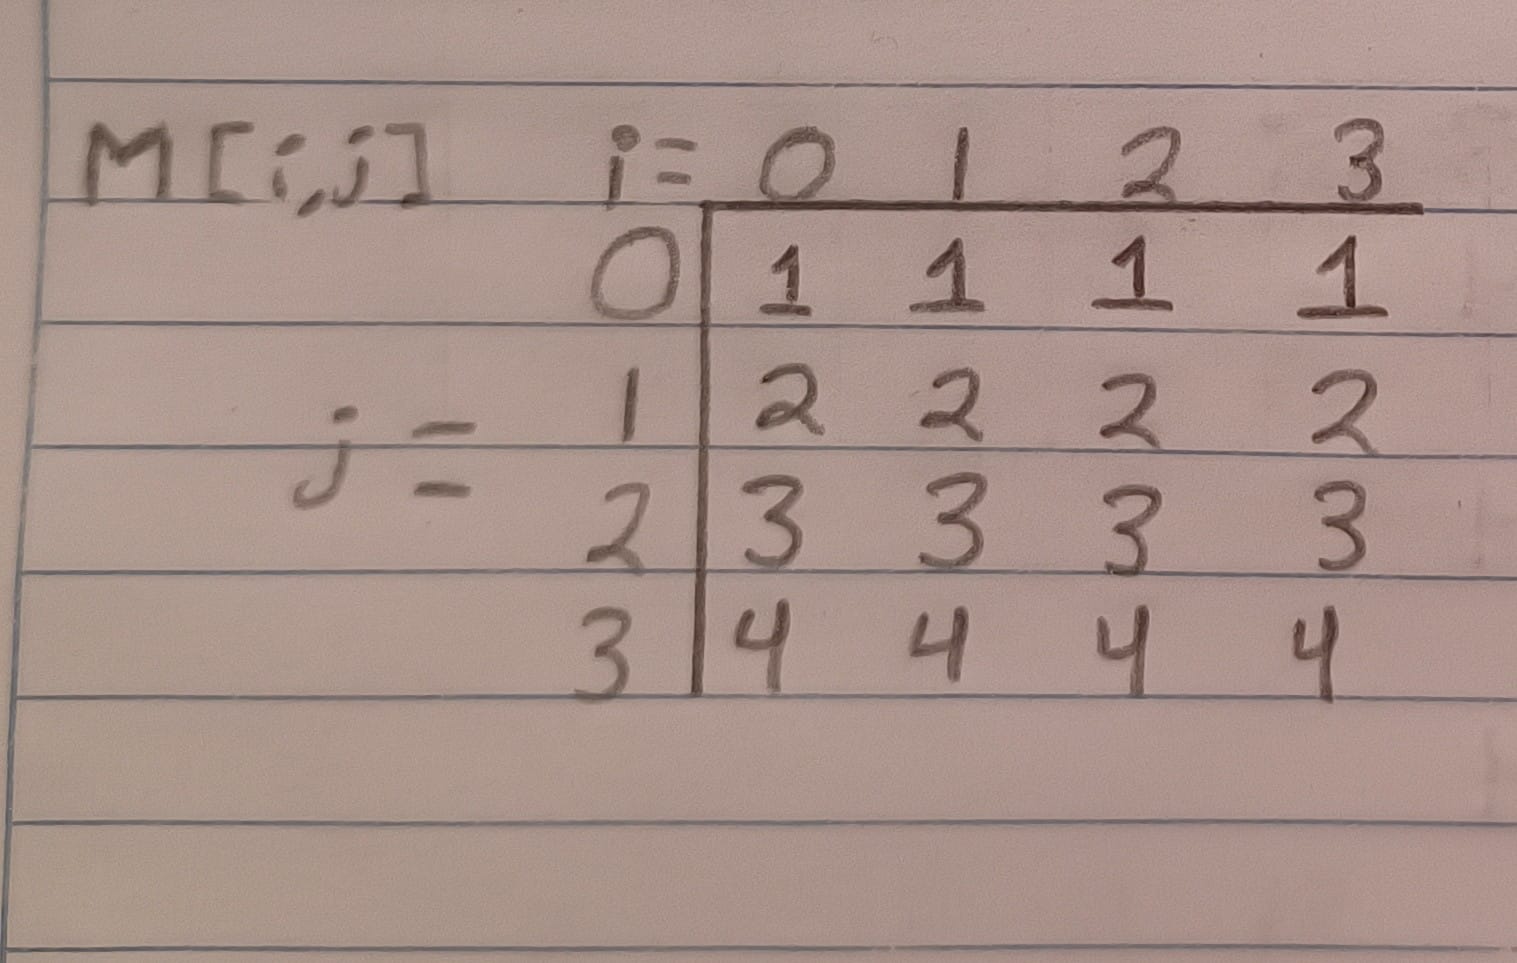 M[i,j] i= 0 1 2 3
0 1 1 1 1
1 2 2 2 2
j =
2 3 3 3 3
3 4 4 4 4